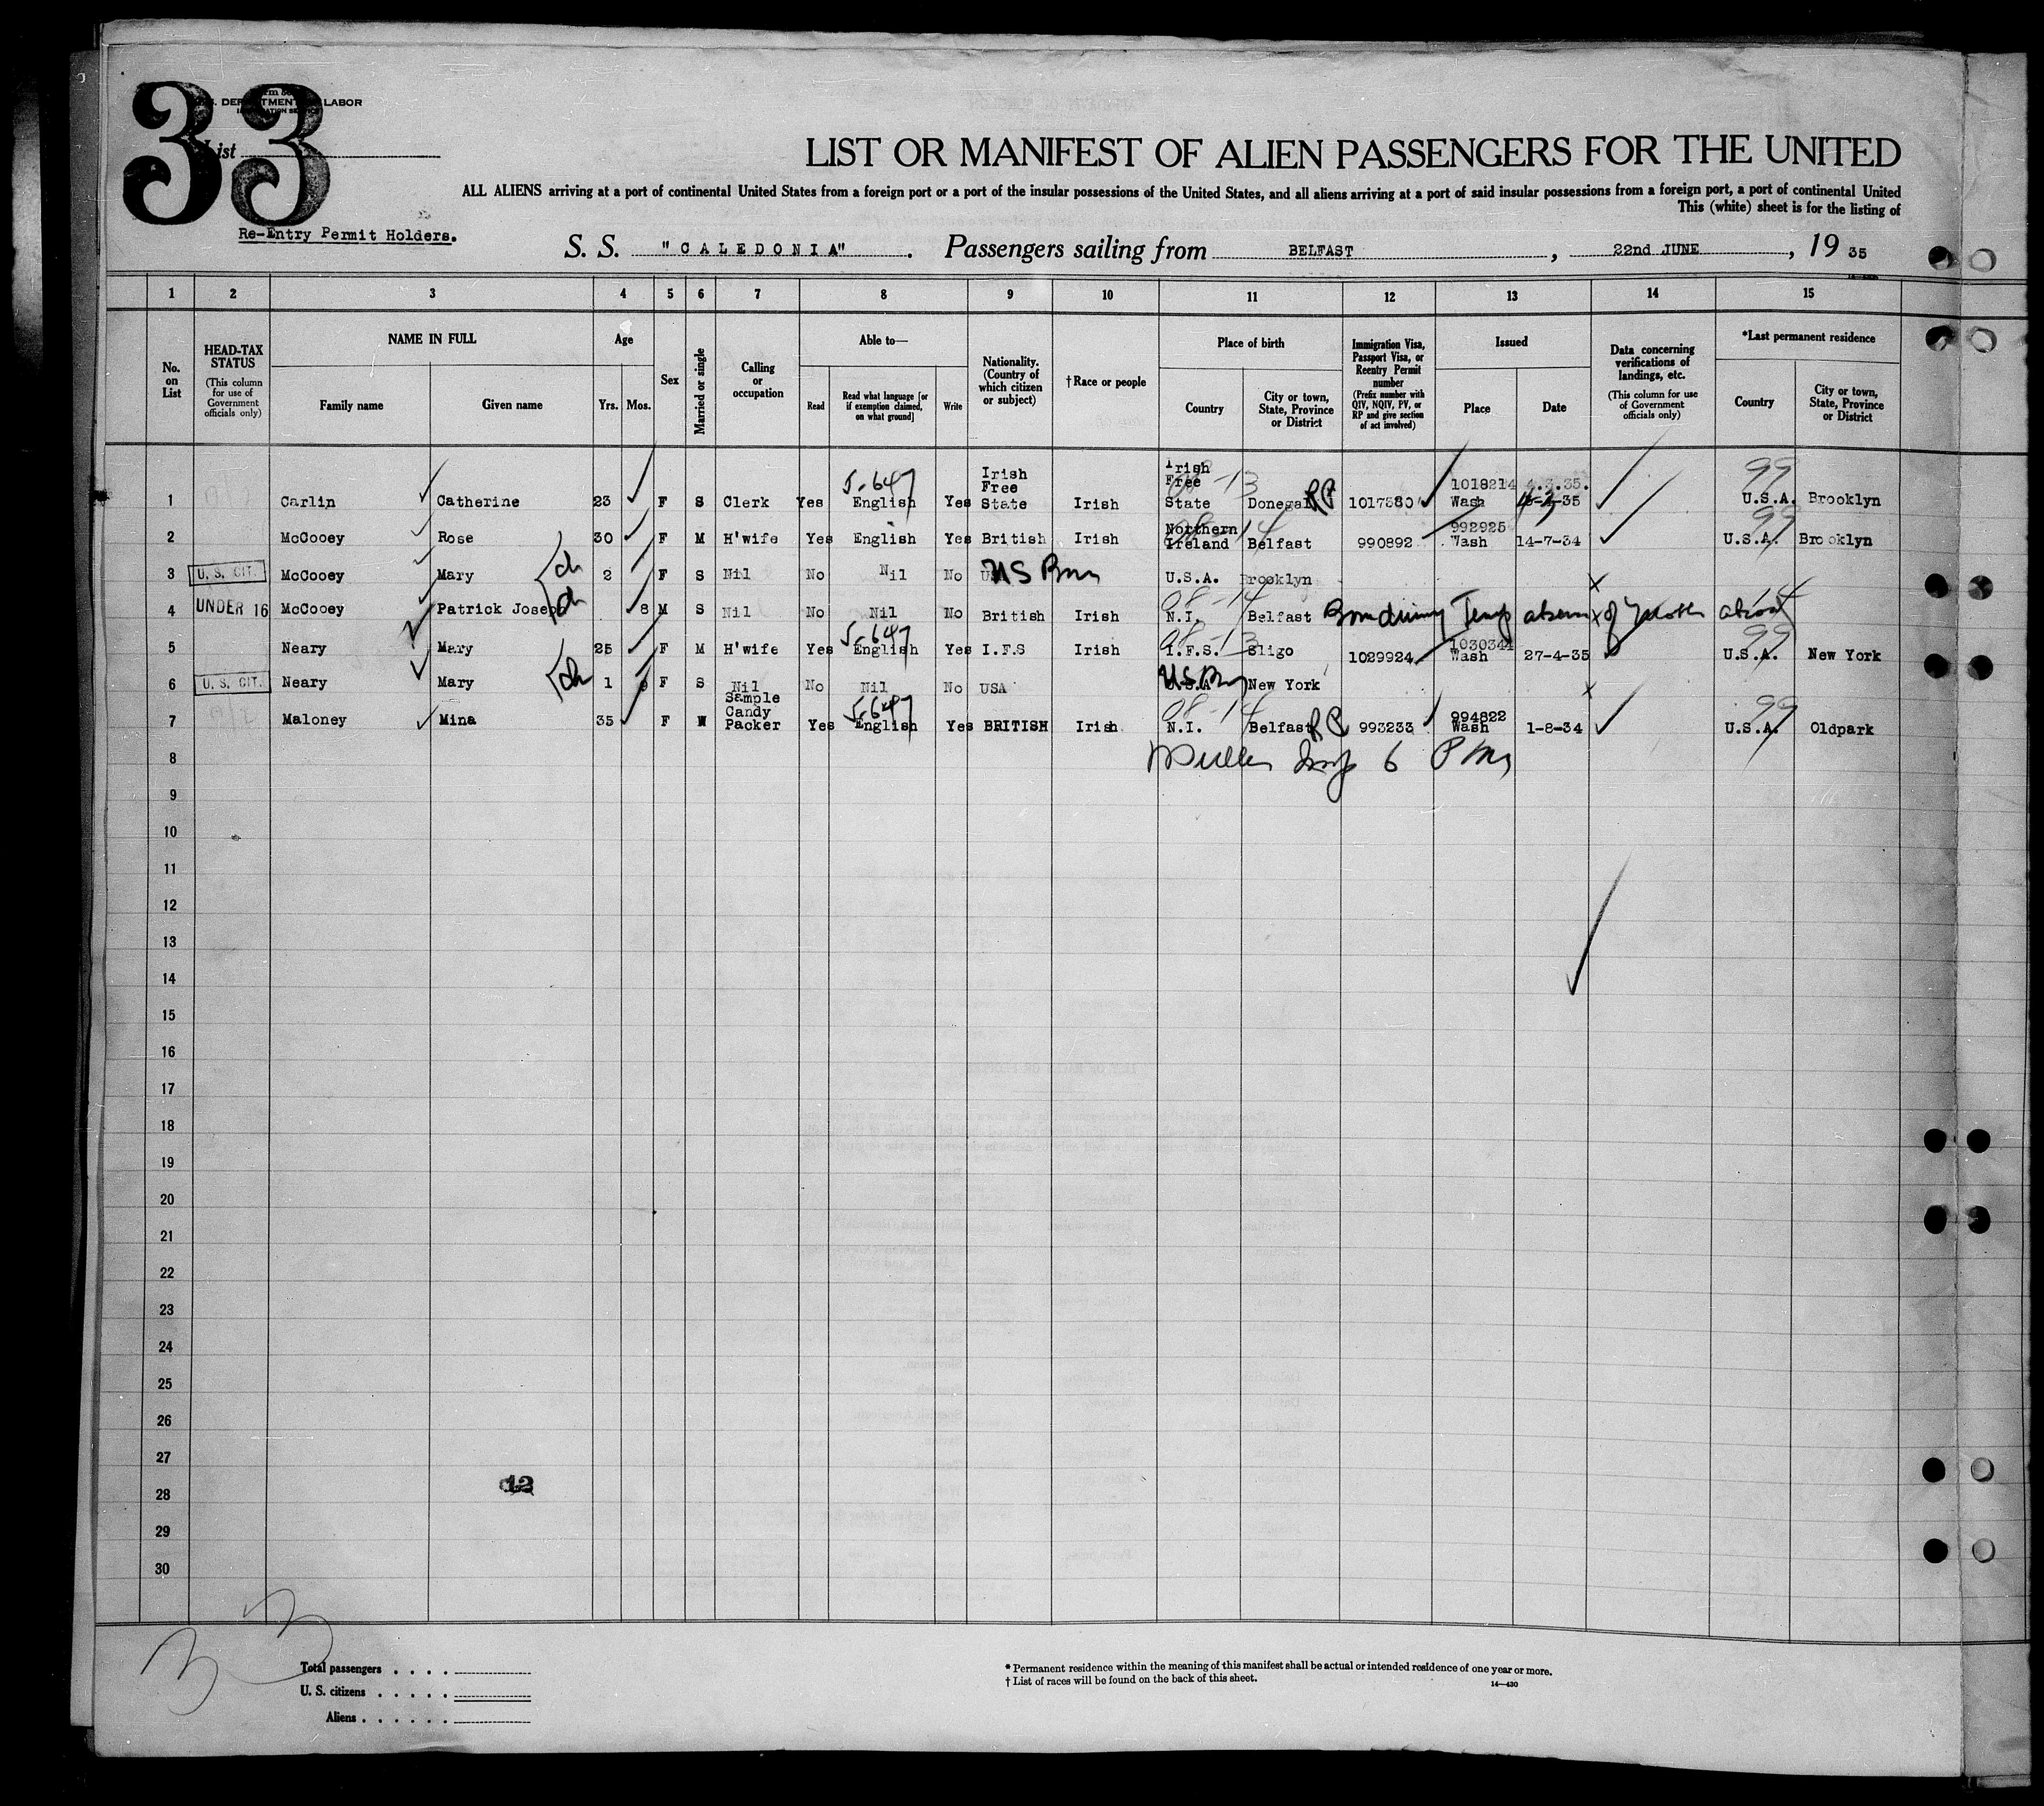 33
U.S. DEPARTMENT OF LABOR
List
LIST OR MANIFEST OF ALIEN PASSENGERS FOR THE UNITED
ALL ALIENS arriving at a port of continental United States from a foreign port or a port of the insular possessions of the United States, and all aliens arriving at a port of said insular possessions from a foreign port, a port of continental United
This (white) sheet is for the listing of
Re-Entry Permit Holders.
S. S. "CALEDONIA". Passengers sailing from BELFAST, 22nd JUNE, 19 35
1 2 3 4 5 6 7 8 9 10 11 12 13 14 15
No. on List
HEAD-TAX STATUS (This column for use of Government officials only)
NAME IN FULL
Family name Given name
Age
Yrs. Mos.
Sex
Married or single
Calling or occupation
Able to—
Read Read what language [or if exemption claimed, on what ground] Write
Nationality. (Country of which citizen or subject)
†Race or people
Place of birth
Country City or town, State, Province or District
Immigration Visa, Passport Visa, or Reentry Permit number (Prefix number with QIV, NQIV, PV, or RP and give section of act involved)
Issued
Place Date
Data concerning verifications of landings, etc. (This column for use of Government officials only)
*Last permanent residence
Country City or town, State, Province or District
1 Carlin Catherine 23 F S Clerk Yes 5-647 English Yes Irish Free State Irish Irish Free State 08-13 Donegal RP 1017380 1018214 4.3.35. Wash 99 U.S.A. Brooklyn
2 McCooey Rose 30 F M H'wife Yes English Yes British Irish Northern Ireland 08-14 Belfast 990892 992925 Wash 14-7-34 99 U.S.A. Brooklyn
3 U. S. CIT. McCooey Mary ch 2 F S Nil No Nil No US Born U.S.A. Brooklyn x
4 UNDER 16 McCooey Patrick Joseph ch 8 M S Nil No Nil No British Irish N.I. 08-14 Belfast Born during Temp absence of Mother abroad
5 Neary Mary 25 F M H'wife Yes 5-647 English Yes I.F.S Irish I.F.S. 08-13 Sligo 1029924 1030344 Wash 27-4-35 99 U.S.A. New York
6 U. S. CIT. Neary Mary ch 1 9 F S Nil No Nil No USA U.S.A US Born New York x
7 Maloney Mina 35 F M Sample Candy Packer Yes 5-647 English Yes BRITISH Irish N.I. 08-14 Belfast RP 993233 994822 Wash 1-8-34 99 U.S.A. Oldpark
8 Insp 6
9
10
11
12
13
14
15
16
17
18
19
20
21
22
23
24
25
26
27
12
28
29
30
33
Total passengers . . . .
U. S. citizens . . . . .
Aliens . . . . . .
* Permanent residence within the meaning of this manifest shall be actual or intended residence of one year or more.
† List of races will be found on the back of this sheet.
14—430